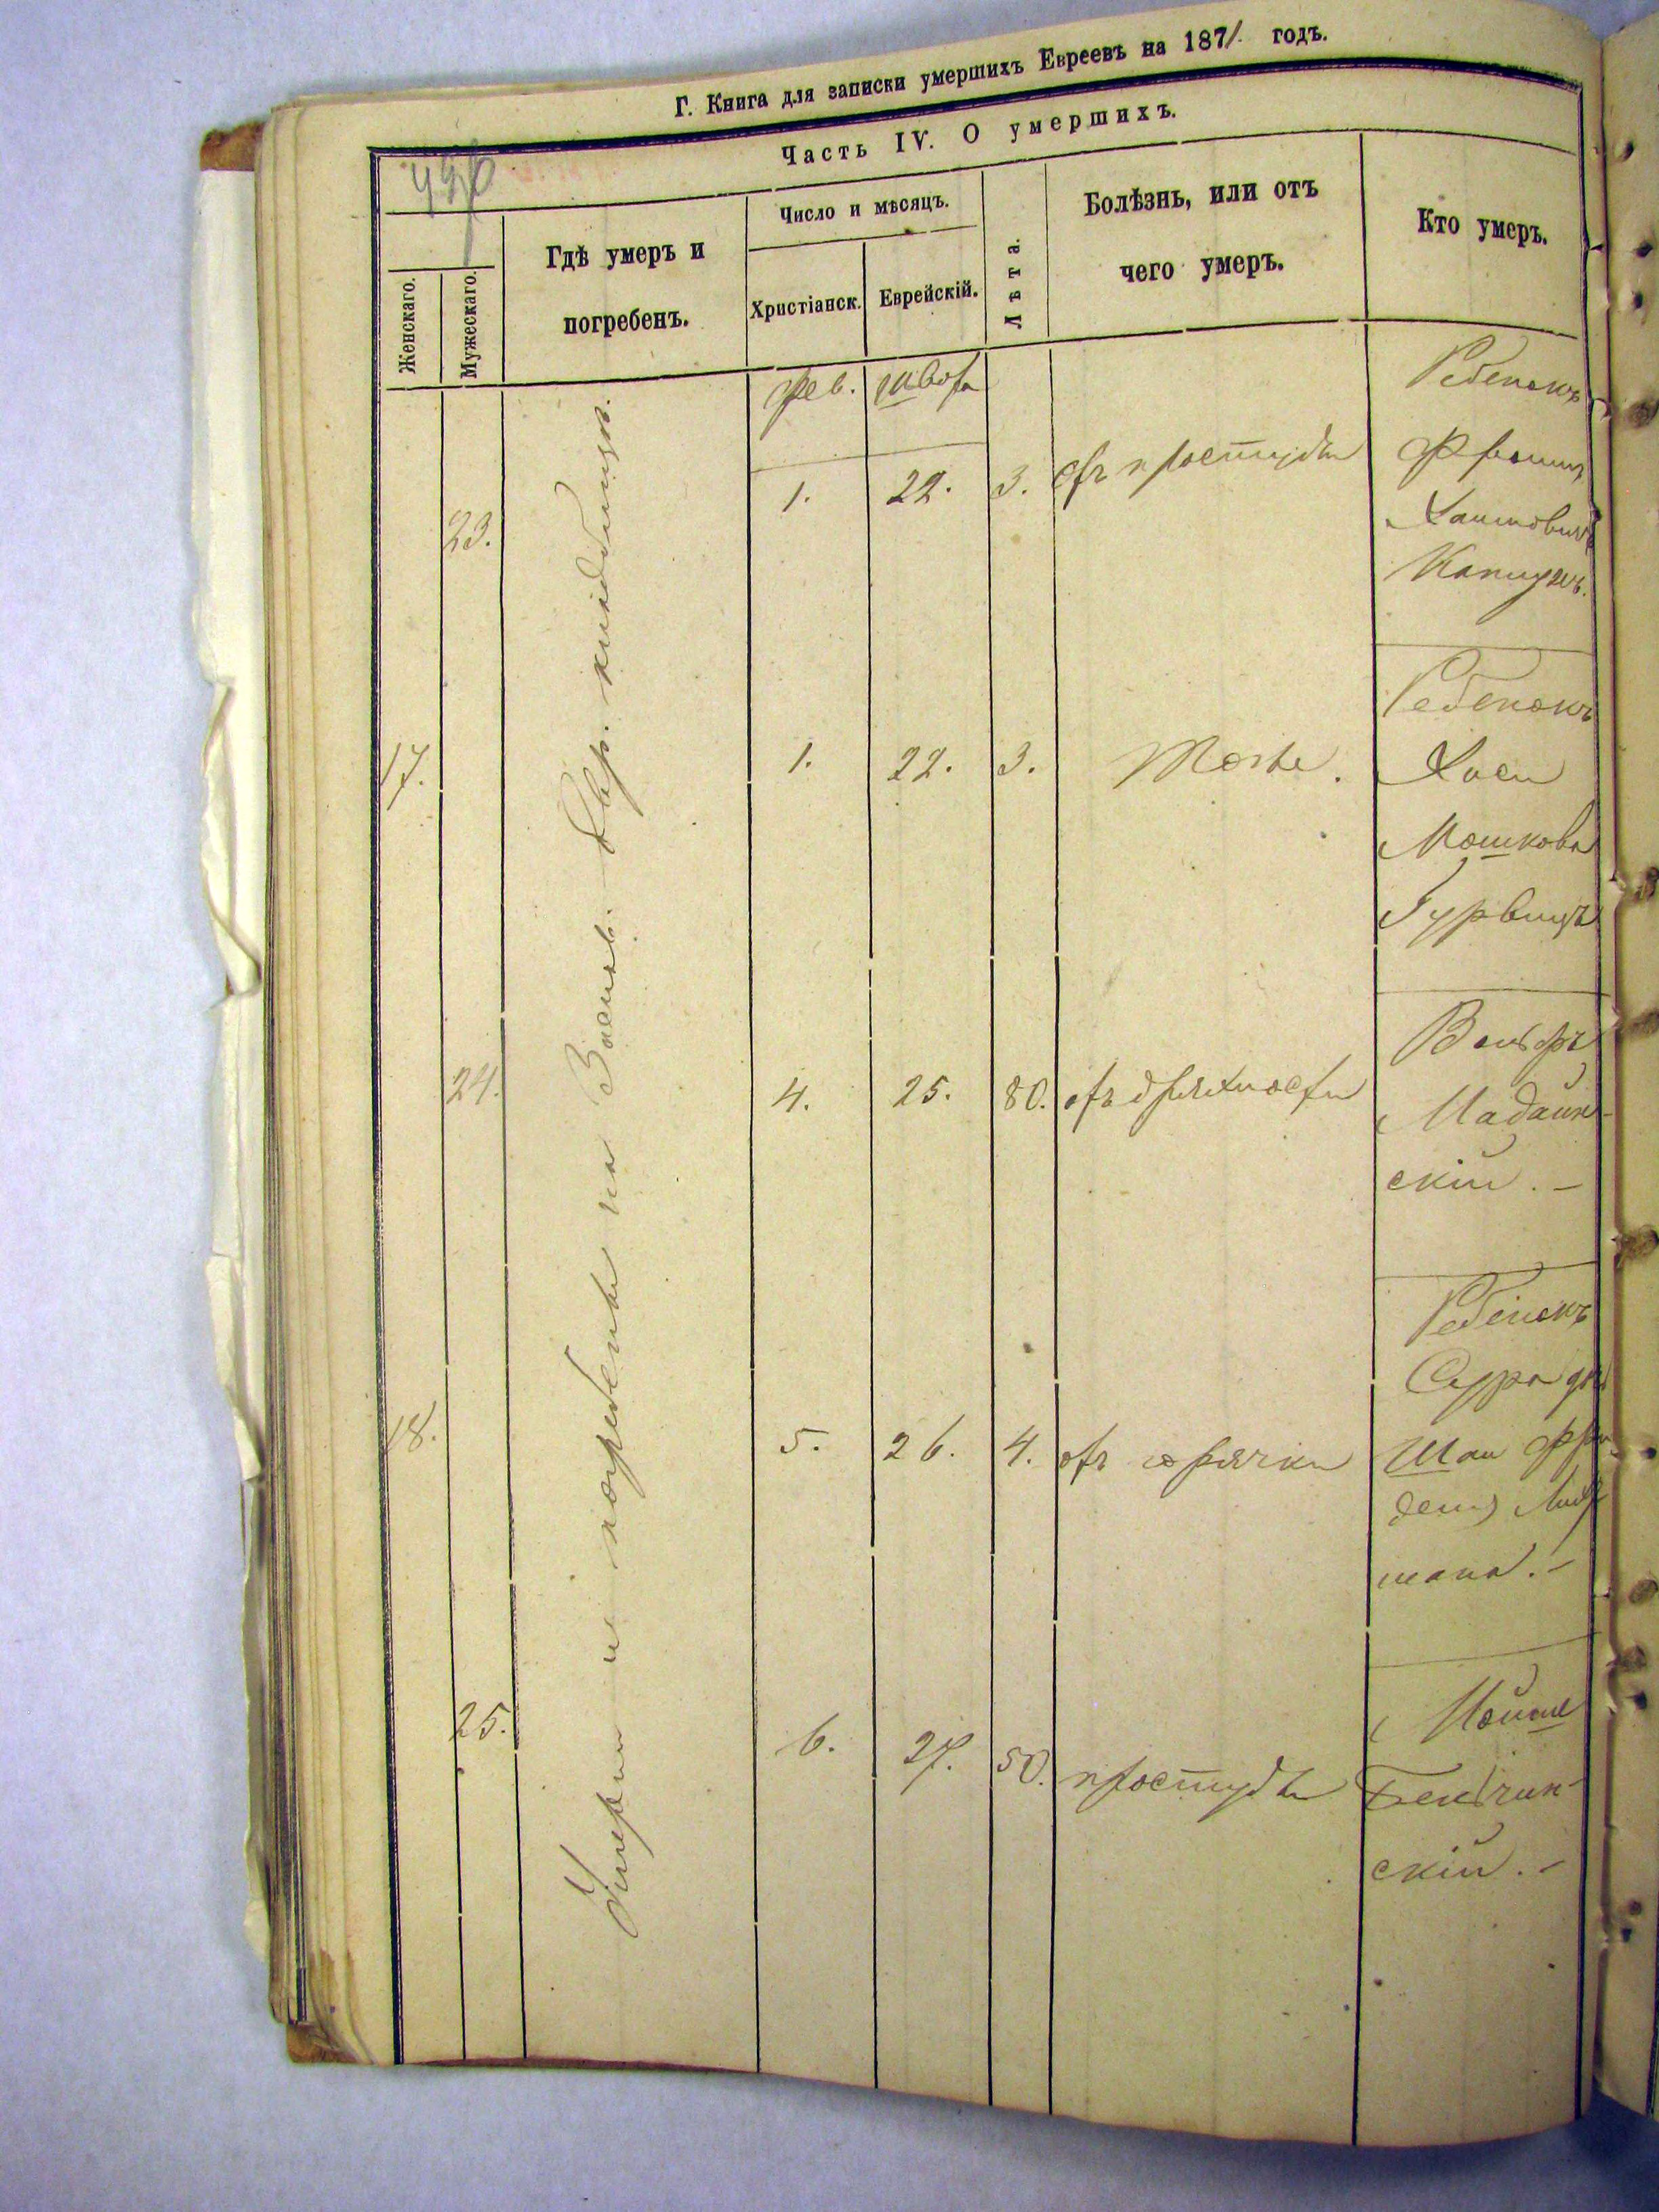 Г. Книга для записки умершихъ Евреевъ на 1871 годъ.
Часть IV. О умершихъ.
Женскаго.
Мужескаго.
Гдѣ умеръ и
погребенъ.
Число и мѣсяцъ.
Христіанск.
Еврейскій.
Лѣта.
Болѣзнь, или отъ
чего умеръ.
Кто умеръ.
Умерли и погребены на Заслав. Евр. кладбищѣ.
Фев. Швотъ
23. 1. 22. 3. отъ простуды
Ребенокъ
Хаимовичъ
17. 1. 22. 3. Тоже.
Ребенокъ
Хася
Мошкова
Гурвицъ
24. 4. 25. 80. отъ дряхлости
Вольфъ
Мадаин-
скій. –
18. 5. 26. 4. отъ горячки
Ребенокъ
Сурра
мана. –
25. 6. 27. 50. простуды
Мойше
скій. –